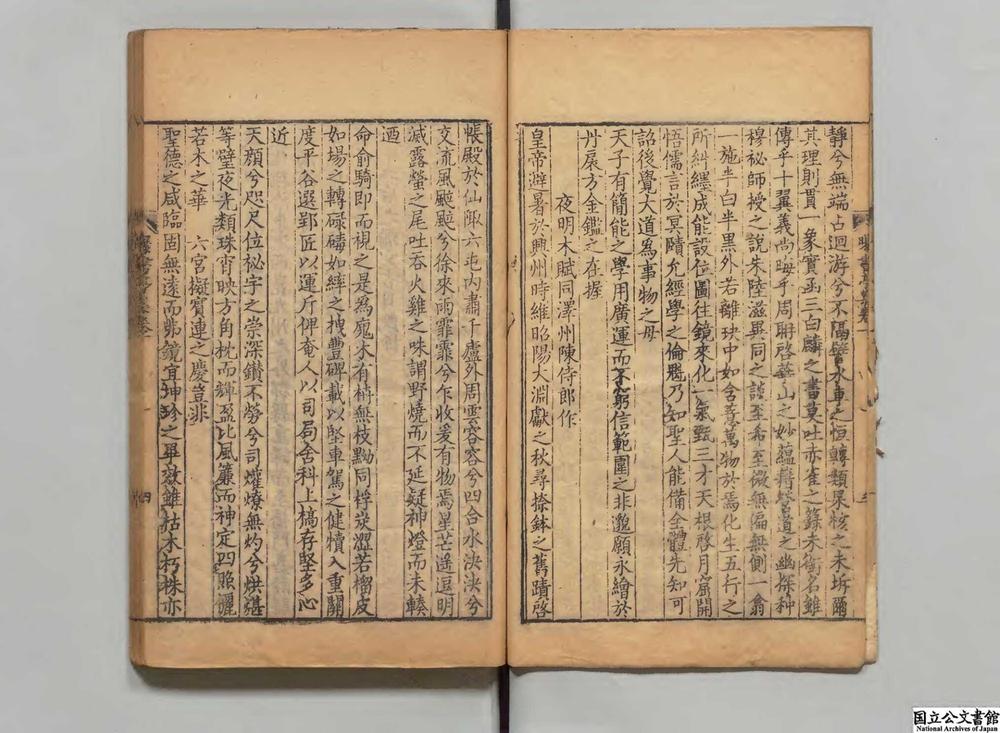 靜兮無端占迴游兮不隔譬水車之恒轉類果核之未坼爾
其理則貫一象實函三白麟之書莫吐赤雀之籙未銜名雖
傳乎十翼義尚晦乎周聃啓華山之妙蘊得營道之幽探种
穆祕師授之說朱陸滋異同之談至希至微無偏無側一翕
一施半白半黑外若離玦中如含薏萬物於焉化生五行之
所糾纆成能設位圖往鏡來化一氣甄三才天根啓月窟開
悟儒言於冥賾允經學之倫魁乃知聖人能備全體先知可
詔後覺大道為事物之母
天子有簡能之學用廣運而不窮信範圍之非邈願永繪於
丹扆方金鑑之在握
夜明木賦同澤州陳侍郎作
皇帝避暑於興州時維昭陽大淵獻之秋尋捺鉢之舊蹟啓
帳殿於仙陬六屯內肅千廬外周雲容容兮四合水泱泱兮
交流風颸颸兮徐來雨霏霏兮乍收爰有物焉星芒遙逗明
滅露螢之尾吐吞火雞之咮謂野燒而不延疑神燈而未輳
迺
命俞騎即而視之是為魔木有樹無枝黝同桴炭澀若榴皮
如場之轉碌碡如縴之拽豐碑載以堅車駕之健犢入重關
度平谷選郢匠以運斤俾奄人以司局舍科上槁存堅多心
近
天顏兮咫尺位祕宇之崇深鑽不勞兮司爟燎無灼兮烘煁
等璧夜光類珠宵映方角枕而輝盈比風簾而神定四照灑
若木之華 六宮擬寶連之慶豈非
聖德之咸臨固無遠而弗鏡宜坤珍之畢效雖枯木朽株亦
四
国立公文書館
National Archives of Japan